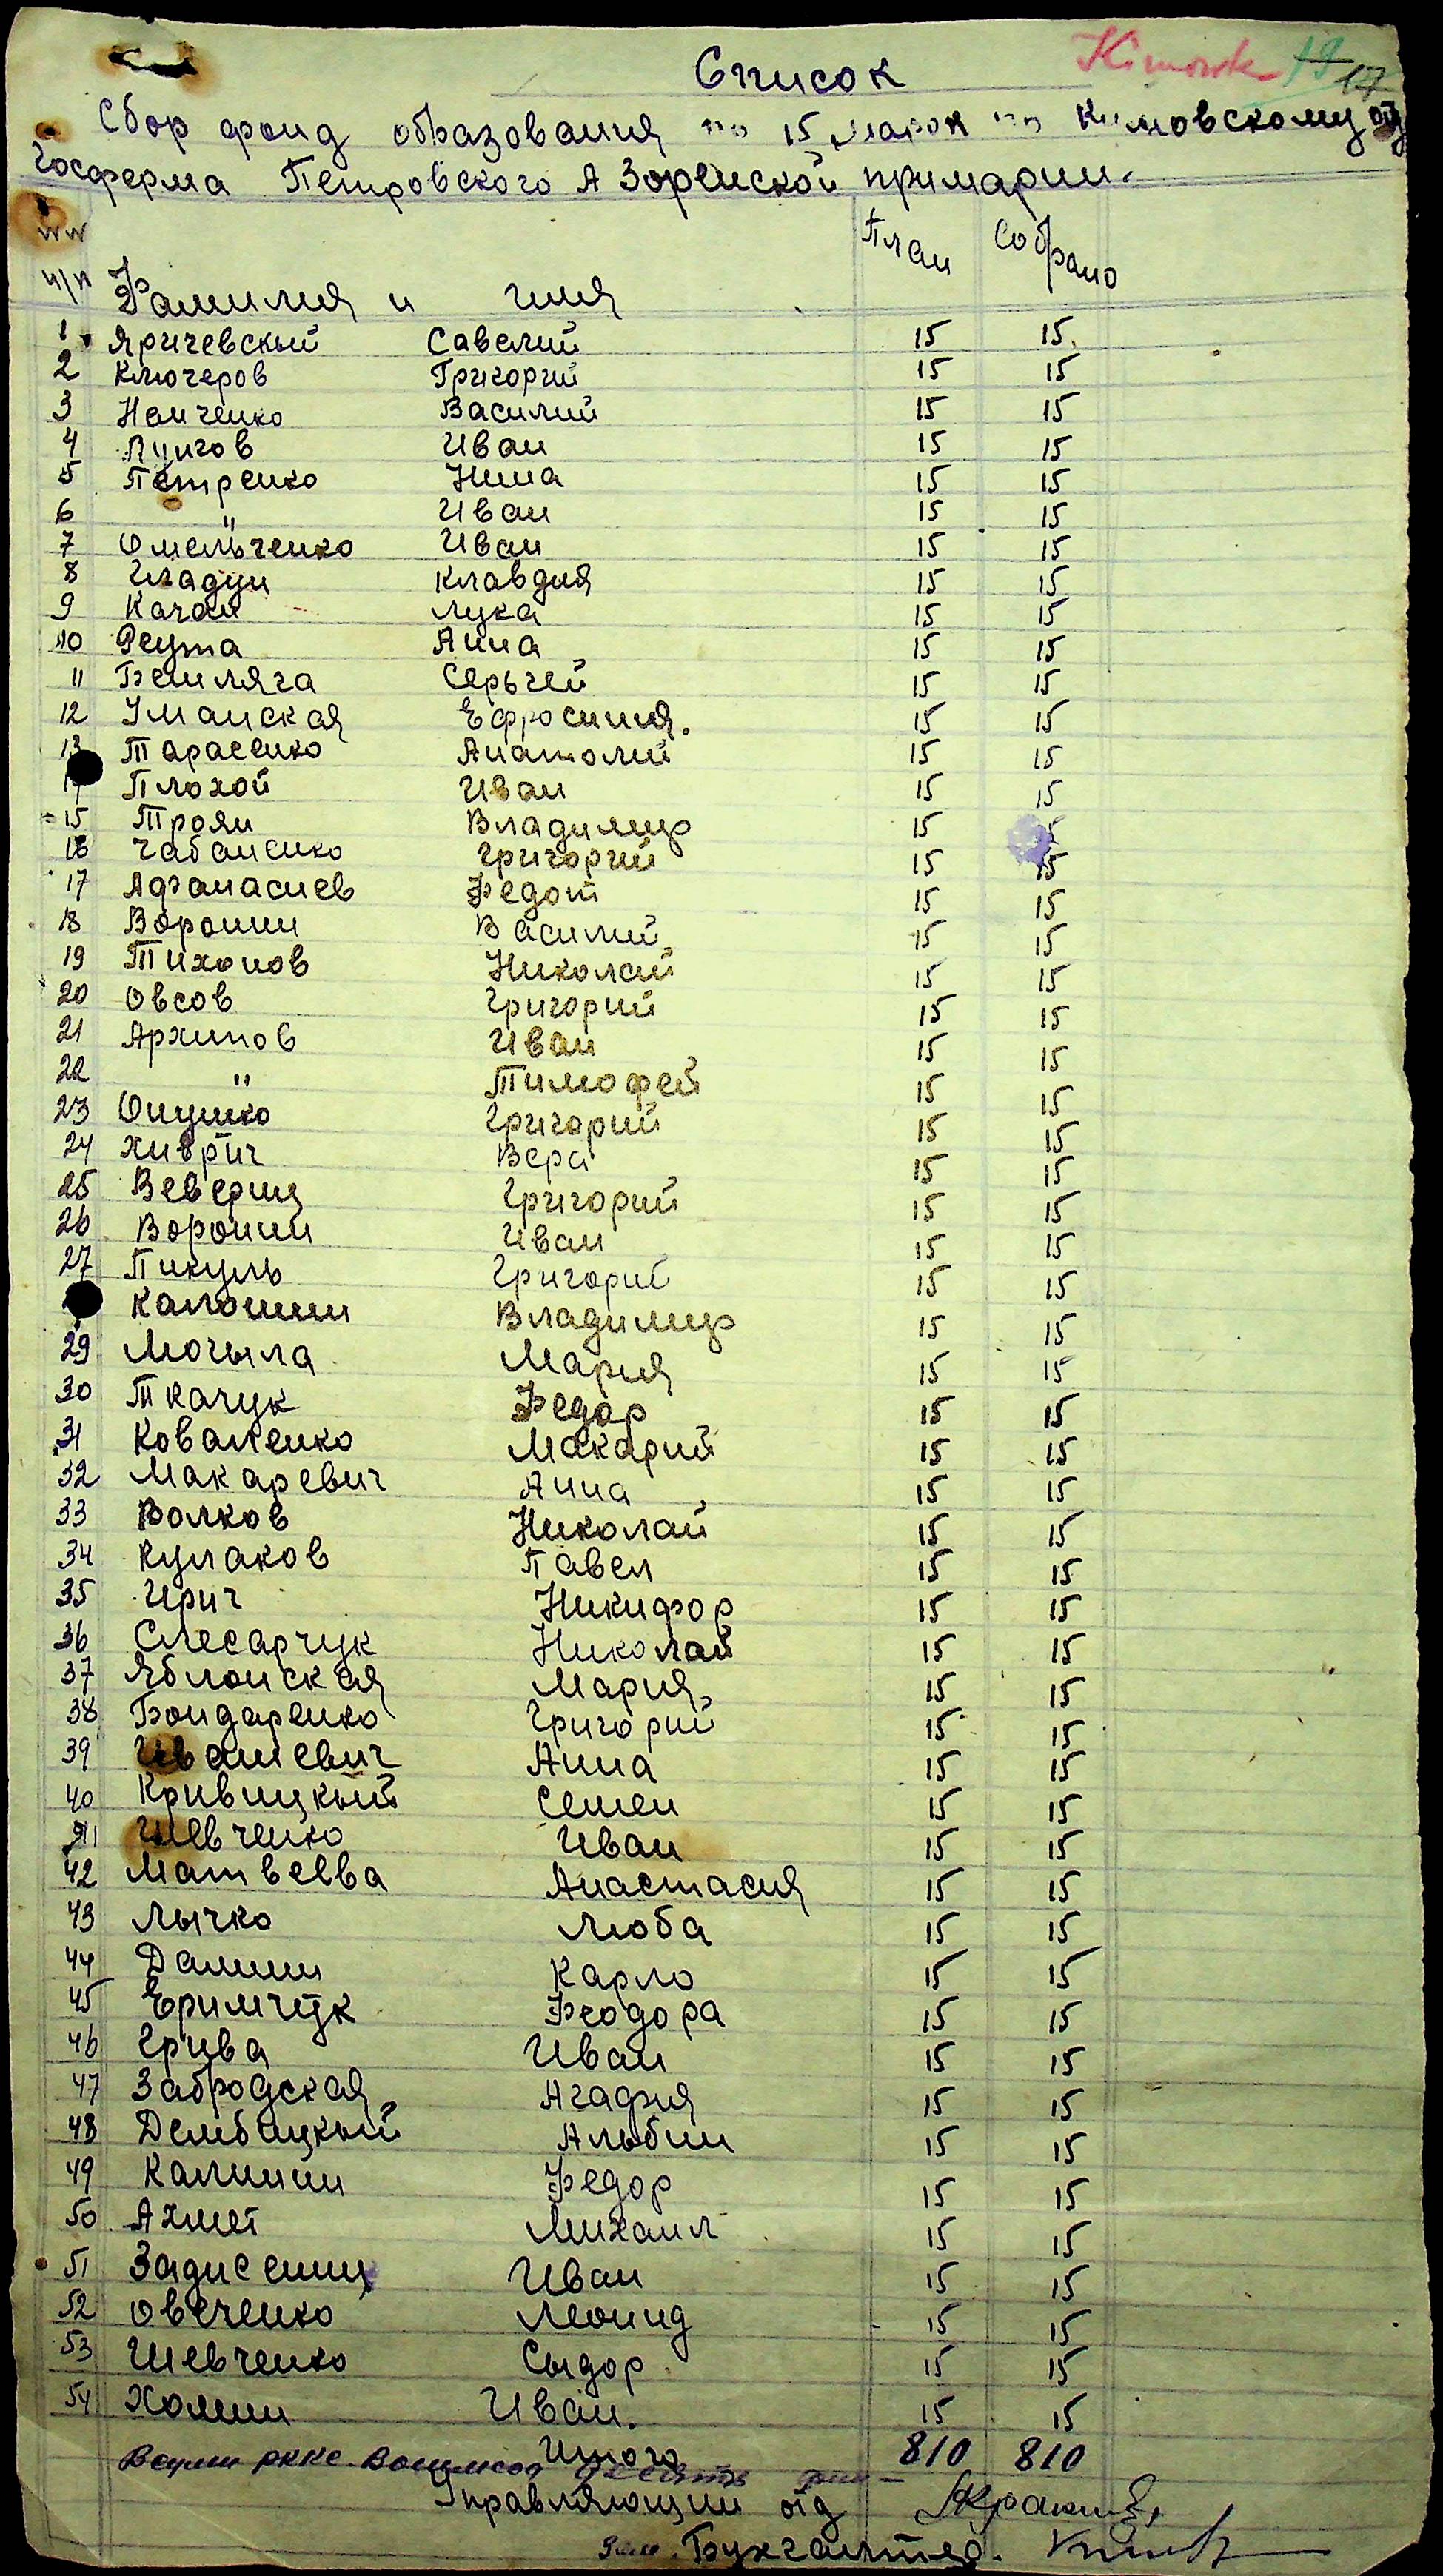 Кimovsk 19 17
Список
Сбор фонд образования по 15 марок по Кимовскому отд
Госферма Петровского А Зоренской примарии.
NN п/п Фамилия и имя План Собрано
1 Яричевский Савелий 15 15
2 Ключеров Григорий 15 15
3 Немченко Василий 15 15
4 Лунгов Иван 15 15
5 Петренко Нина 15 15
6 " Иван 15 15
7 Омельченко Иван 15 15
8 Гладун Клавдия 15 15
9 Качан Лука 15 15
10 Реута Анна 15 15
11 Бешляга Серьгей 15 15
12 Уманская Ефросиния. 15 15
13 Тарасенко Анатолий 15 15
14 Плохой Иван 15 15
15 Троян Владимир 15
16 Чабаненко Григорий 15 15
17 Афанасиев Федот 15 15
18 Воронин Василий 15 15
19 Тихонов Николай 15 15
20 Овсов Григорий 15 15
21 Архипов Иван 15 15
22 " Тимофей 15 15
23 Онушко Григорий 15 15
24 Хиврич Вера 15 15
25 Вевериц Григорий 15 15
26 Воронин Иван 15 15
27 Пикуль Григорий 15 15
Калошин Владимир 15 15
29 Могыла Мария 15 15
30 Ткачук Федор 15 15
31 Коваленко Макарий 15 15
32 Макаревич Анна 15 15
33 Волков Николай 15 15
34 Кулаков Павел 15 15
35 Ирич Никифор 15 15
36 Слесарчук Николай 15 15
37 Яблонская Мария 15 15
38 Бондаренко Григорий 15 15
39 Иваневич Анна 15 15
40 Кривицкый Семен 15 15
41 Шевченко Иван 15 15
42 Матвеева Анастасия 15 15
43 Лычко Люба 15 15
44 Далинин Карло 15 15
45 Еримчук Феодора 15 15
46 Грива Иван 15 15
47 Забродская Агафия 15 15
48 Дембицкый Альбин 15 15
49 Калинин Федор 15 15
50 Ахмет Михаил 15 15
51 Задисенец Иван 15 15
52 Овеченко Леонид 15 15
53 Шевченко Сыдор 15 15
54 Хомин Иван. 15 15
Итого 810 810
Восимсот десять
Управляющий отд
Зам. Бухгалтер.